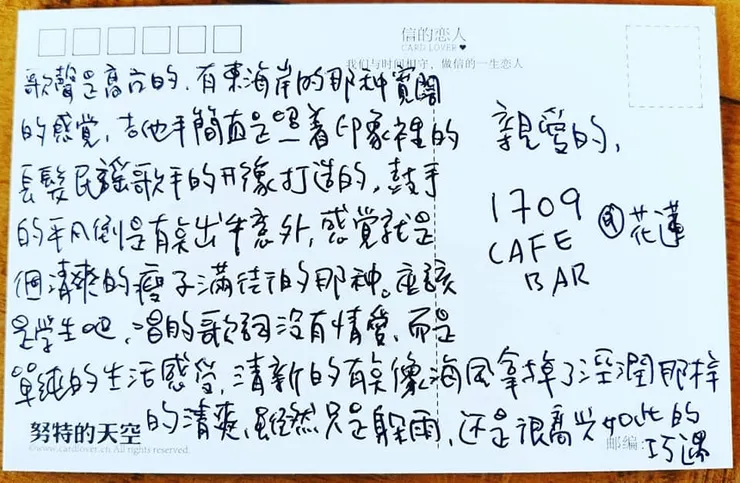 信的恋人
CARD LOVER♥
我们与时间相守，做信的一生恋人
歌聲是高亢的，有東海岸的那种寬闊
的感覚，吉他手簡直是照着印象裡的
長髮民謠歌手的形像打造的，鼓手
的平凡倒是有点出乎意外，感覚就是
個清爽的瘦子滿街拍的那种。應該
是学生吧，唱的歌詞没有情愛，而是
單純的生活感受，清新的有点像海风拿掉了溼潤那样
的清爽，虽然只是躲雨，还是很高兴如此的
巧遇
親愛的，
1709
CAFE
BAR
@花蓮
努特的天空
©www.cardlover.cn All rights reserved.
邮编: